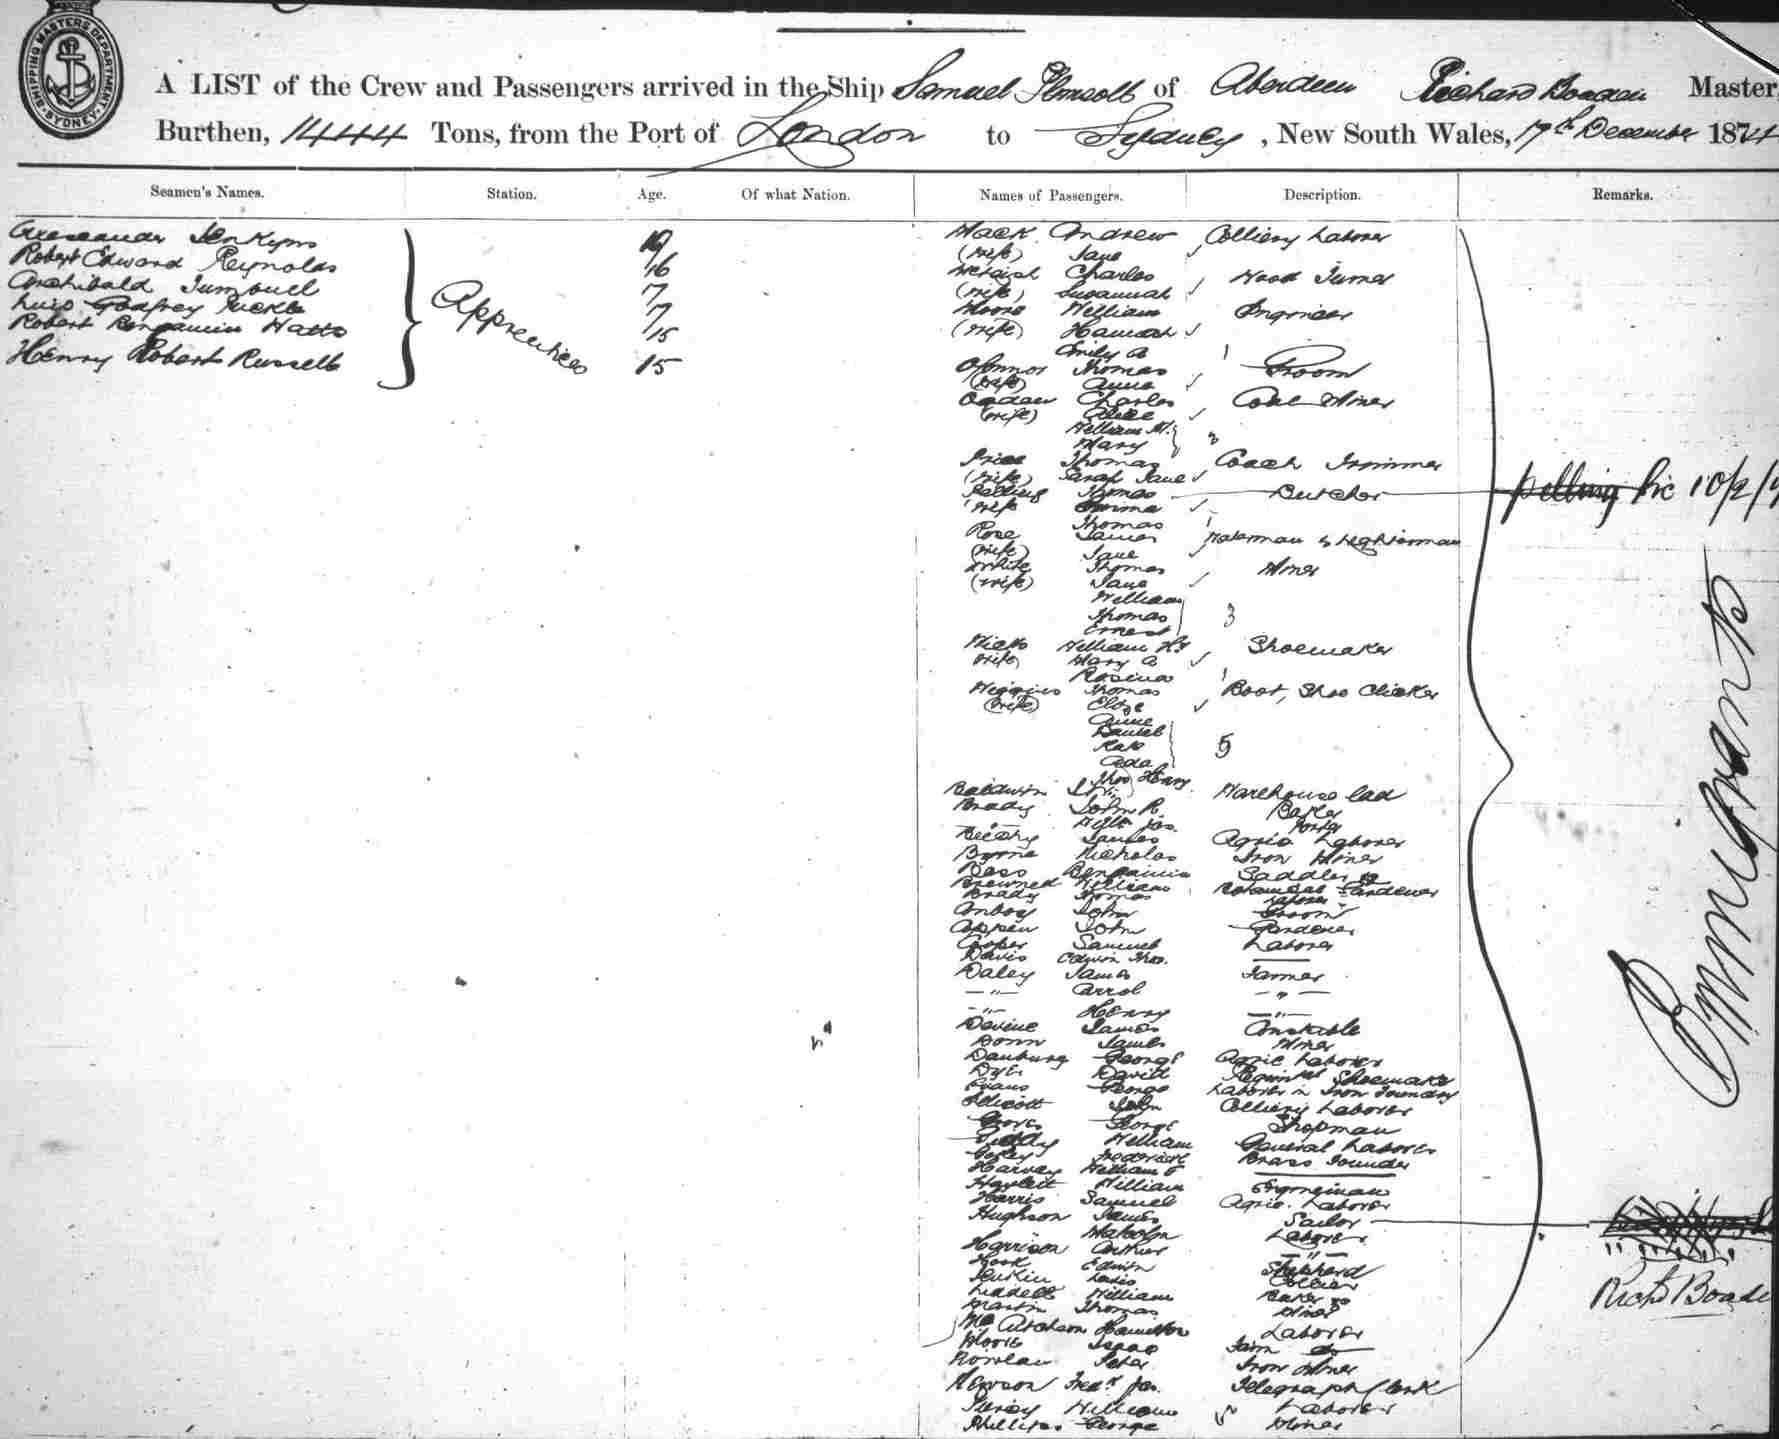 SHIPPING MASTERS DEPARTMENT SYDNEY
A LIST of the Crew and Passengers arrived in the Ship Samuel Plimsoll of Aberdeen Richard Boaden Master,
Burthen, 1444 Tons, from the Port of London to Sydney, New South Wales, 17th December 1874
Seamen's Names. Station. Age. Of what Nation. Names of Passengers. Description. Remarks.
Alexander Jenkyns 19
Robert Edward Reynolds 16
Archibald Turnbull 17
Godfrey 17
Robert Benjamin Watts 15
Henry Robert Russell 15
Apprentices
Mack Andrew Colliery Laborer
(wife) Jane
Charles Wood Turner
(wife) Susannah
Moore William Engineer
(wife) Hannah
Emily A 1
O'Connor Thomas Groom
(wife) Anne
Charles Coal Miner
(wife) Alice
William M.
Mary 2
Price Thomas Coach Trimmer
(wife) Sarah Jane
Pelling Thomas Butcher pelling
wife Emma
Thomas 1
Rose James Waterman & Lighterman
(wife) Jane
White Thomas Miner
(wife) Jane
William
Thomas 3
Ernest
William Hy Shoemaker
wife Mary A
Rosina 1
Higgins Thomas Boot, Shoe Clicker
(wife) Eliza
Anne
Daniel
Kate 5
Ada
Thos Henry
Baldwin Warehouse lad
Brady John R. Baker
—"— Porter
James Agric Laborer
Byrne Nicholas Iron Miner
Bass Benjamin Saddler
William Botanical Gardener
Brady Thomas Laborer
Conboy John Groom
Coppen John Gardener
Cooper Samuel Laborer
Davis Edwin Thos. ——
Daley James Farmer
—"— Carrol —"—
—"— Henry —"—
Devine James Constable
Donn James Miner
Danbury George Agric Laborer
Dyer David Shoemaker
Evans George Laborer in Iron Foundry
Ellicott John Colliery Laborer
Groves George Shopman
William General Laborer
Frederick Brass Founder
Harvey William F ——
Haylett William Engineman
Harris Samuel Agric. Laborer
Hughson James Sailor
Malcolm Laborer
Harrison Arthur —"—
Hook Edwin Shepherd
Jenkin Lewis Collier
Liddell William Baker
Martin Thomas Miner
McAitcheson Hamilton Laborer
Moore Isaac Farm do
Rowlan Peter Iron Miner
Fredk Jas. Telegraph Clerk
William Laborer
Phillips George Miner
Emmigrants
Richd Boade